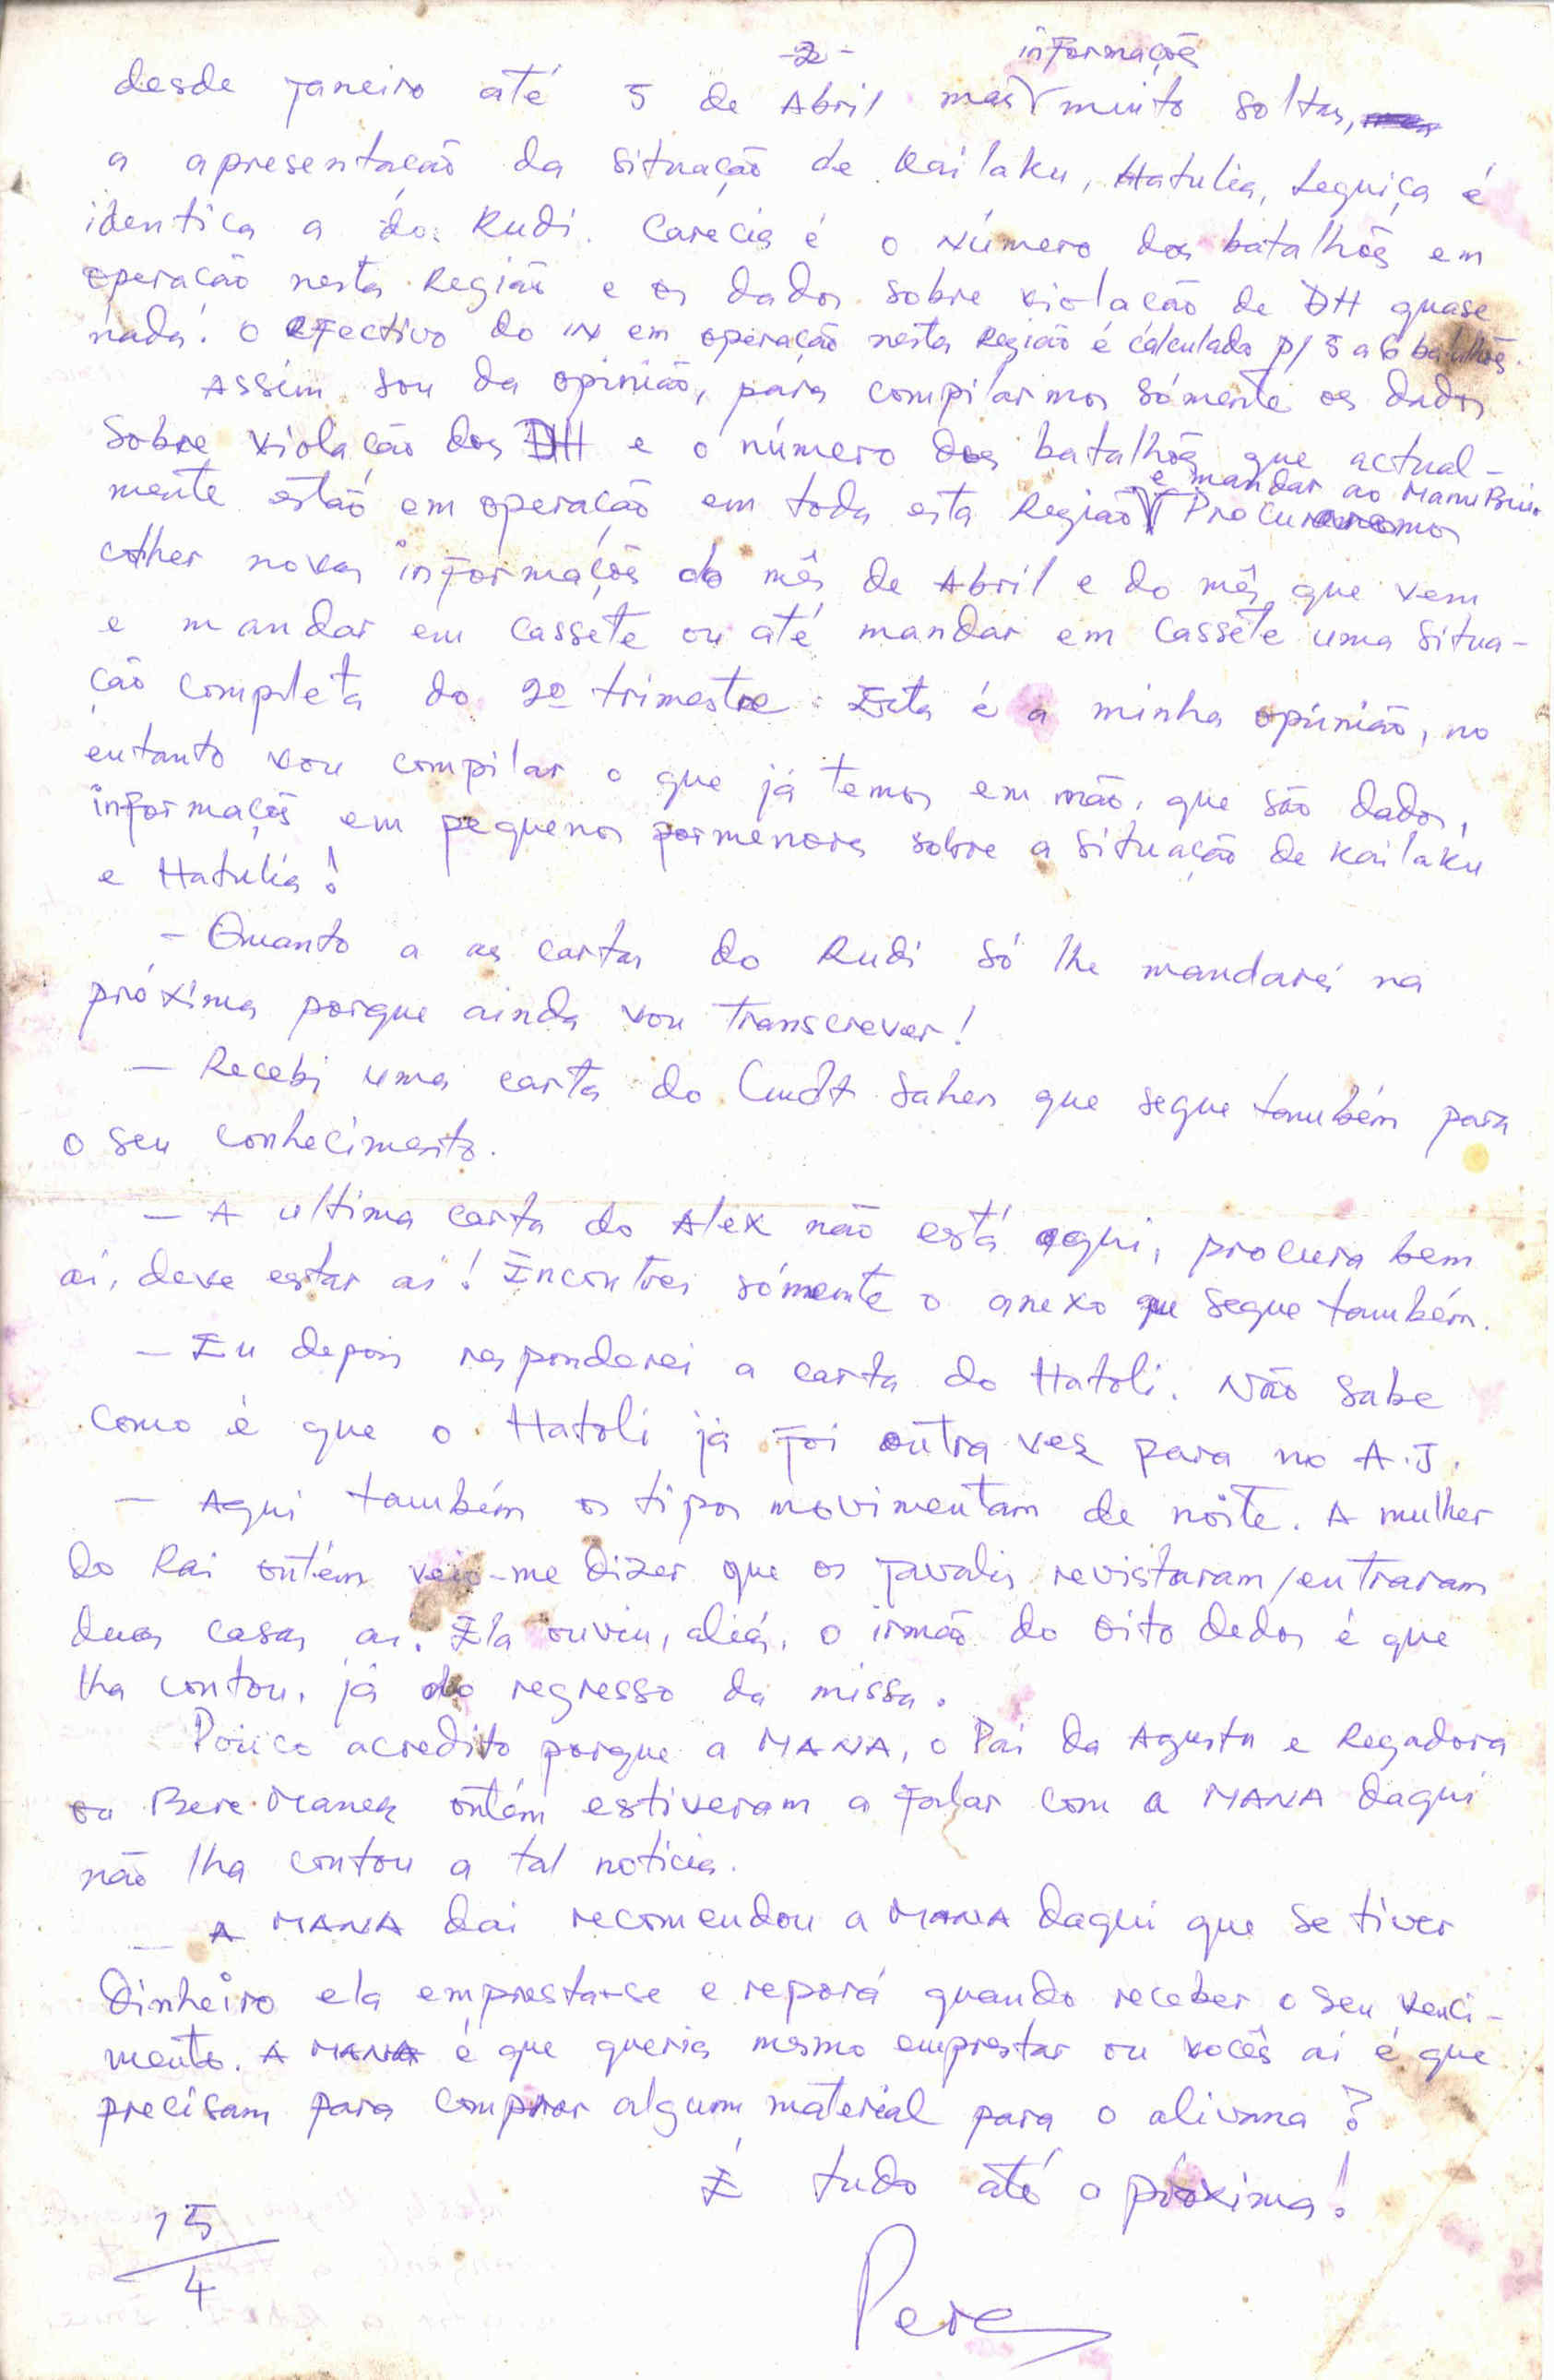 -2-
desde janeiro até 5 de Abril mas informações muito soltas,
a apresentação da situação de Kailaku, Hatulia, Leguiça é
identica a do Rudi. Carecia é o Número dos batalhões em
operação nesta Região e os dados sobre violação de DH quase
nada! O efectivo do IN em operação nesta Região é cálculado p/ 5 a 6 batalhões.
Assim sou da opinião, para compilarmos sómente os dados
sobre violação dos DH e o número dos batalhões que actual-
mente estão em operação em toda esta Região e mandar ao Manu Procuraremos
colher novas informações do mês de Abril e do mês que vem
e mandar em cassete ou até mandar em cassête uma situa-
ção completa do 2º trimestre. Esta é a minha opinião, no
entanto vou compilar o que já temos em mão, que são dados,
informações em pequenos pormenores sobre a situação de Kailaku
e Hatulia!
- Quanto a as cartas do Rudi só lhe mandarei na
próxima porque ainda vou transcrever!
- Recebi uma carta do Cmdt Saher que segue também para
o seu conhecimento.
- A ultima carta do Alex não está aqui, procura bem
aí, deve estar aí! Encontrei sómente o anexo que segue também.
- Eu depois responderei a carta do Hatoli. Não sabe
como é que o Hatoli já foi outra vez para no A.J.
- Aqui também os tipos movimentam de noite. A mulher
do Rai ontém veio-me dizer que os javalis revistaram/entraram
duas casas aí. Ela ouviu, aliás, o irmão do oito dedos é que
lha contou, já do regresso da missa.
Pouco acredito porque a MANA, o Pai da Agusta e Regadora
ou Bere-Manek ontém estiveram a falar com a MANA daqui
não lha contou a tal noticia.
- A MANA daí recomendou a MANA daqui que se tiver
dinheiro ela empresta-se e reporá quando receber o seu venci-
mento. A MANA é que queria mesmo emprestar ou vocês aí é que
precisam para comprar algum material para o
É tudo até a próxima!
15/4
Pere